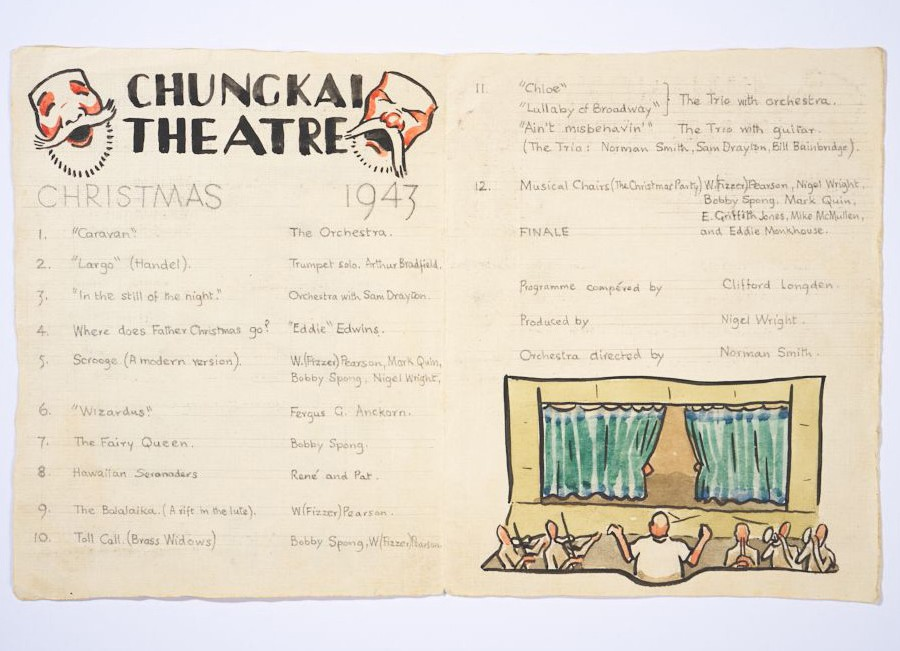 CHUNGKAI
THEATRE
CHRISTMAS 1943
1. "Caravan" The Orchestra.
2. "Largo" (Handel). Trumpet solo. Arthur Bradfield.
3. "In the still of the night." Orchestra with Sam Drayton.
4. Where does Father Christmas go? "Eddie" Edwins.
5. Scrooge. (A modern version). W.(Fizzer) Pearson, Mark Quin,
Bobby Spong, Nigel Wright,
6. "Wizardus" Fergus G. Anckorn.
7. The Fairy Queen. Bobby Spong.
8. Hawaiian Seranaders René and Pat.
9. The Balalaika. (A rift in the lute). W(Fizzer) Pearson.
10. Toll Call. (Brass Widows) Bobby Spong, W.(Fizzer) Pearson
11. "Chloe"
"Lullaby of Broadway" } The Trio with orchestra.
"Ain't misbehavin'" The Trio with guitar.
(The Trio: Norman Smith, Sam Drayton, Bill Bainbridge).
12. Musical Chairs (The Christmas Party) W.(Fizzer) Pearson, Nigel Wright,
Bobby Spong, Mark Quin,
E. Griffith Jones, Mike McMullen,
FINALE and Eddie Monkhouse.
Programme compéred by Clifford Longden.
Produced by Nigel Wright.
Orchestra directed by Norman Smith.